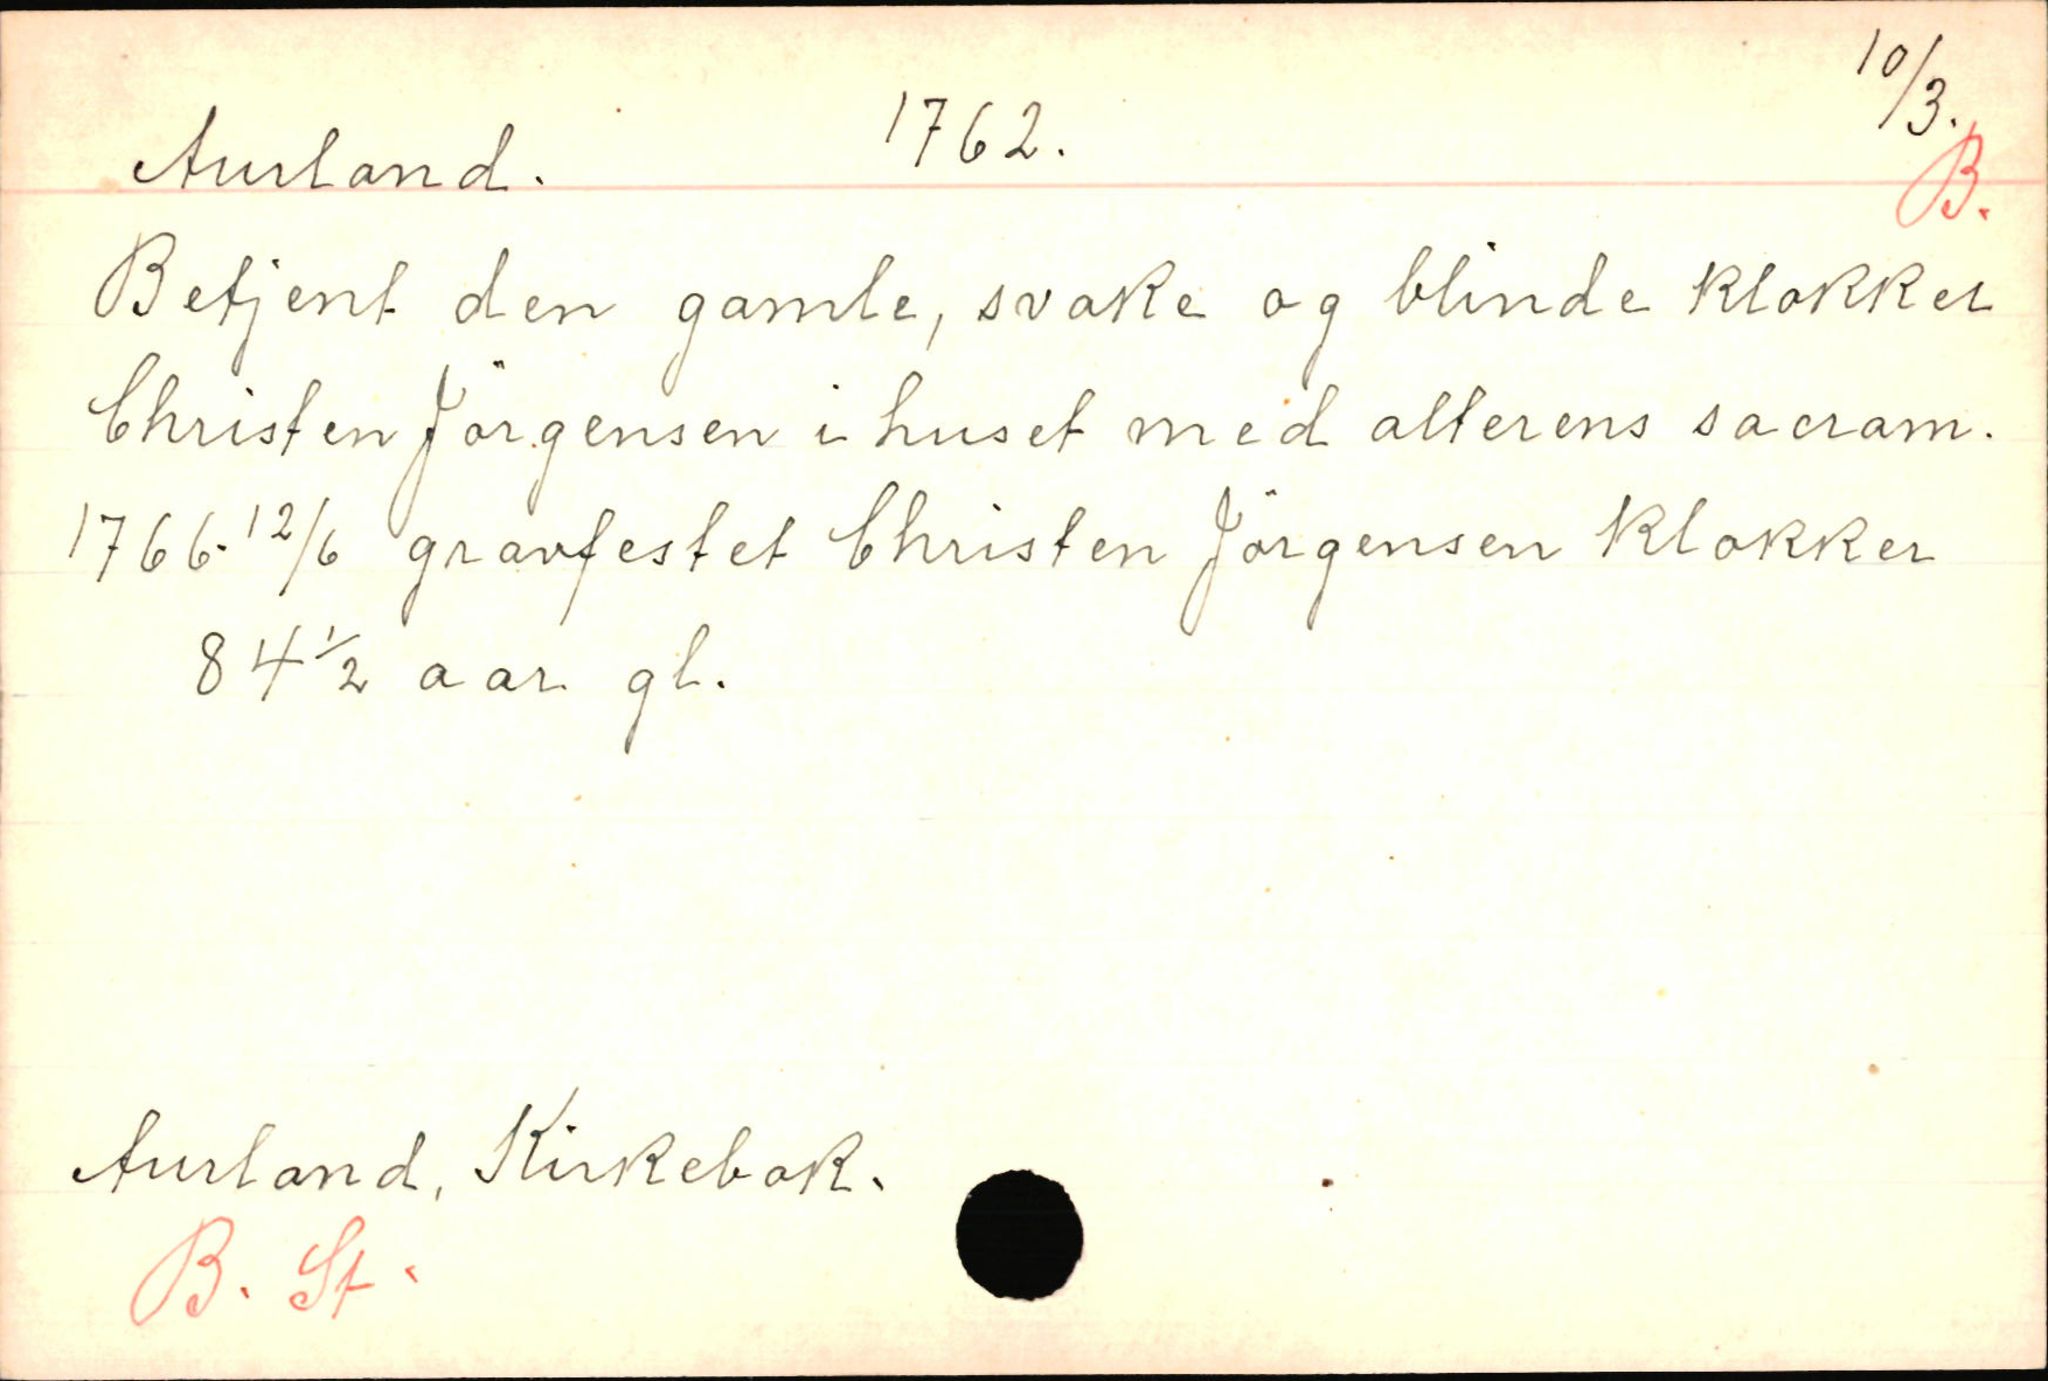 Aurland. 1762. 10/3.
B.
Betjent den gamle, svake og blinde klokker
Christen Jörgensen i huset med alterens sacram.
1766. 12/6 gravfestet Christen Jörgensen Klokker
84 1/2 aar gl.
Aurland, Kirkebok.
B. St.